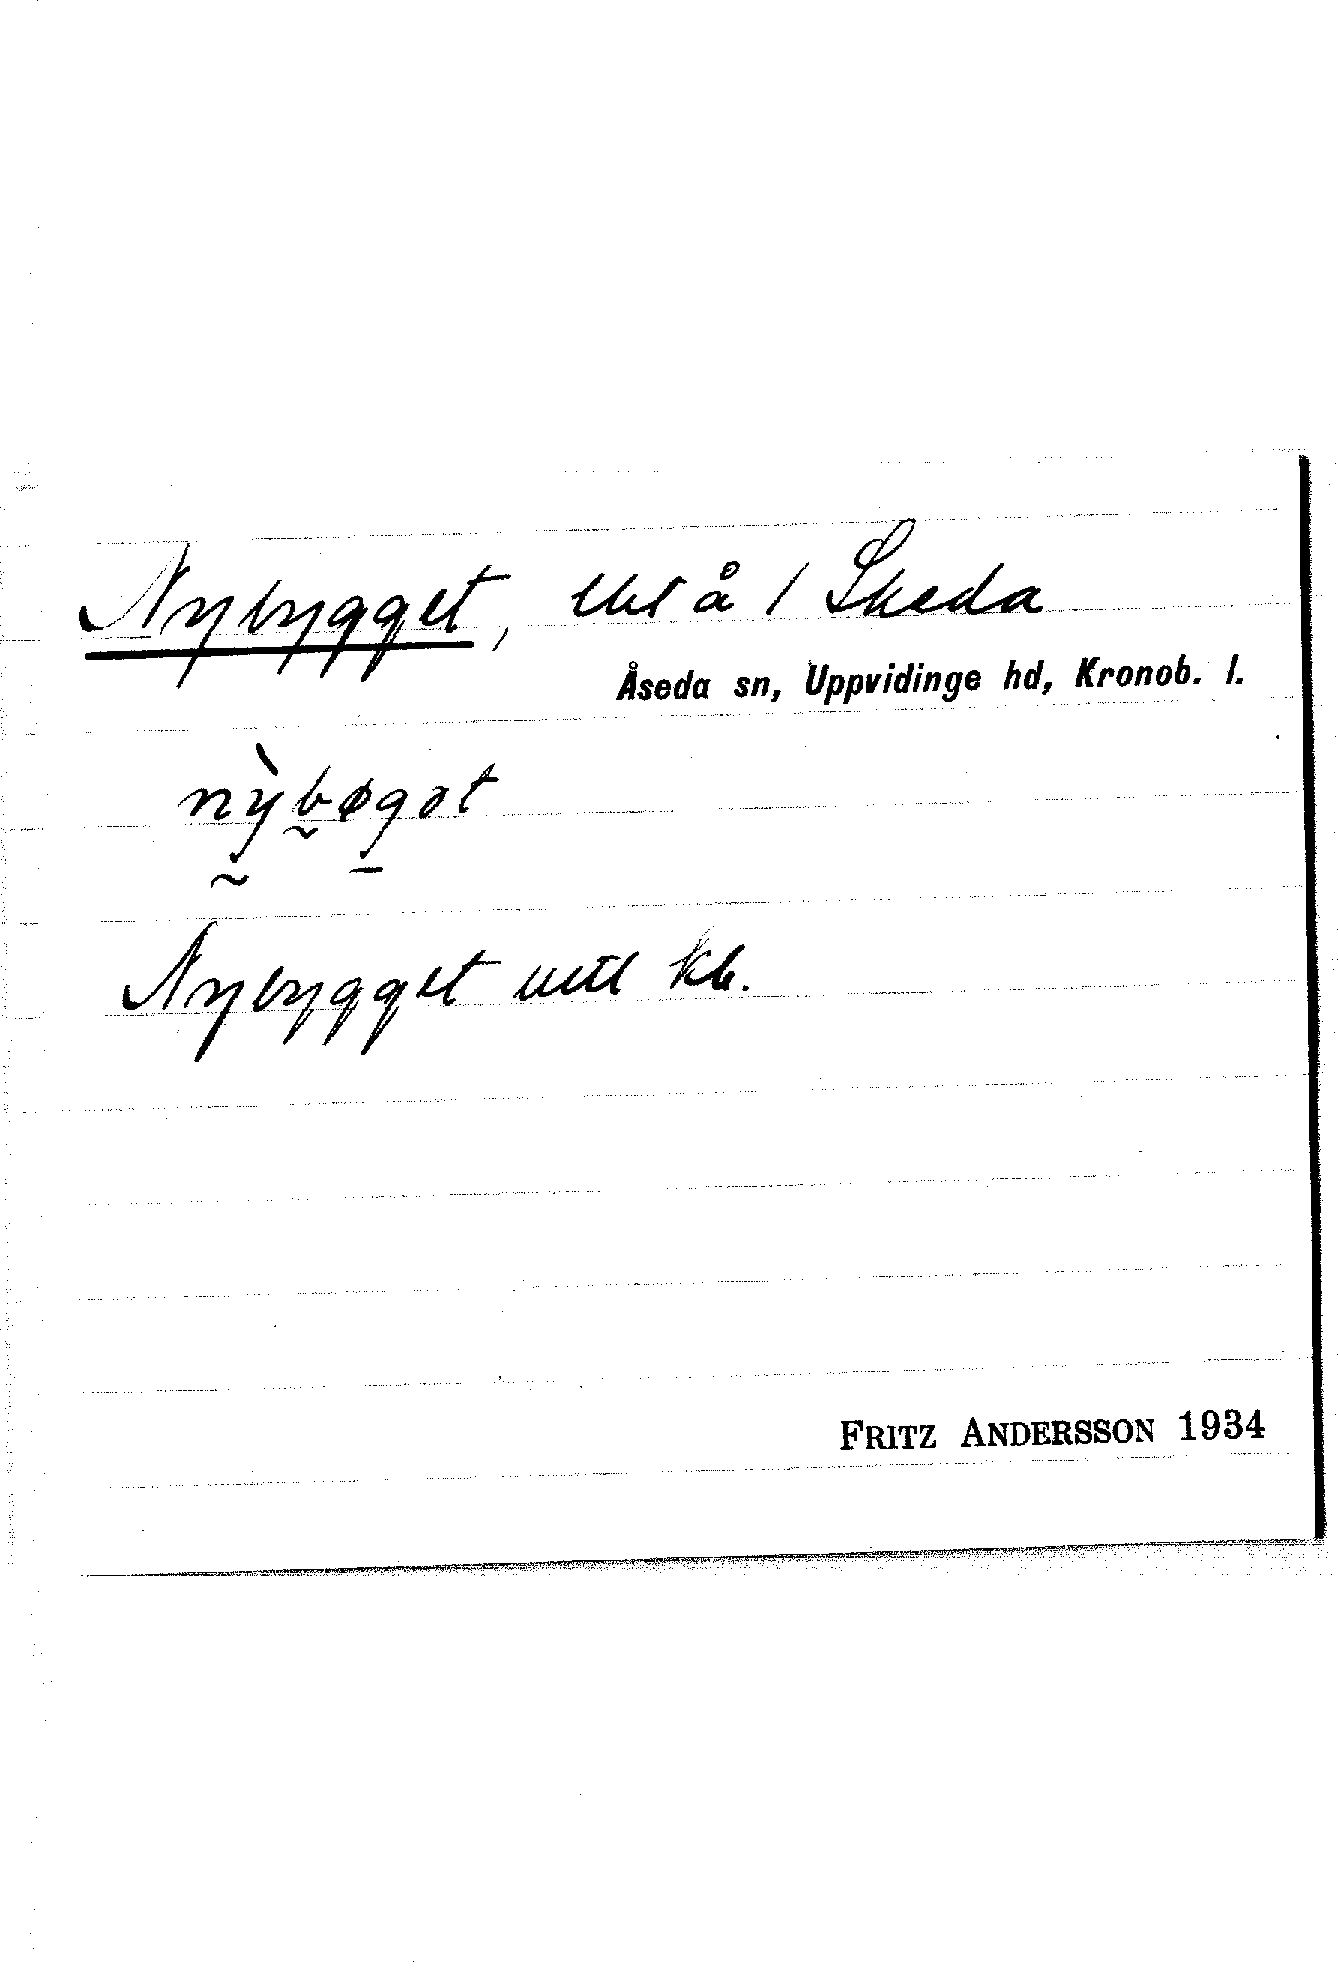 Nybygget, lht å 1 Skeda
Åseda sn, Uppvidinge hd, Kronob. l.
nỳbøgət
Nybygget utl kb.
FRITZ ANDERSSON 1934